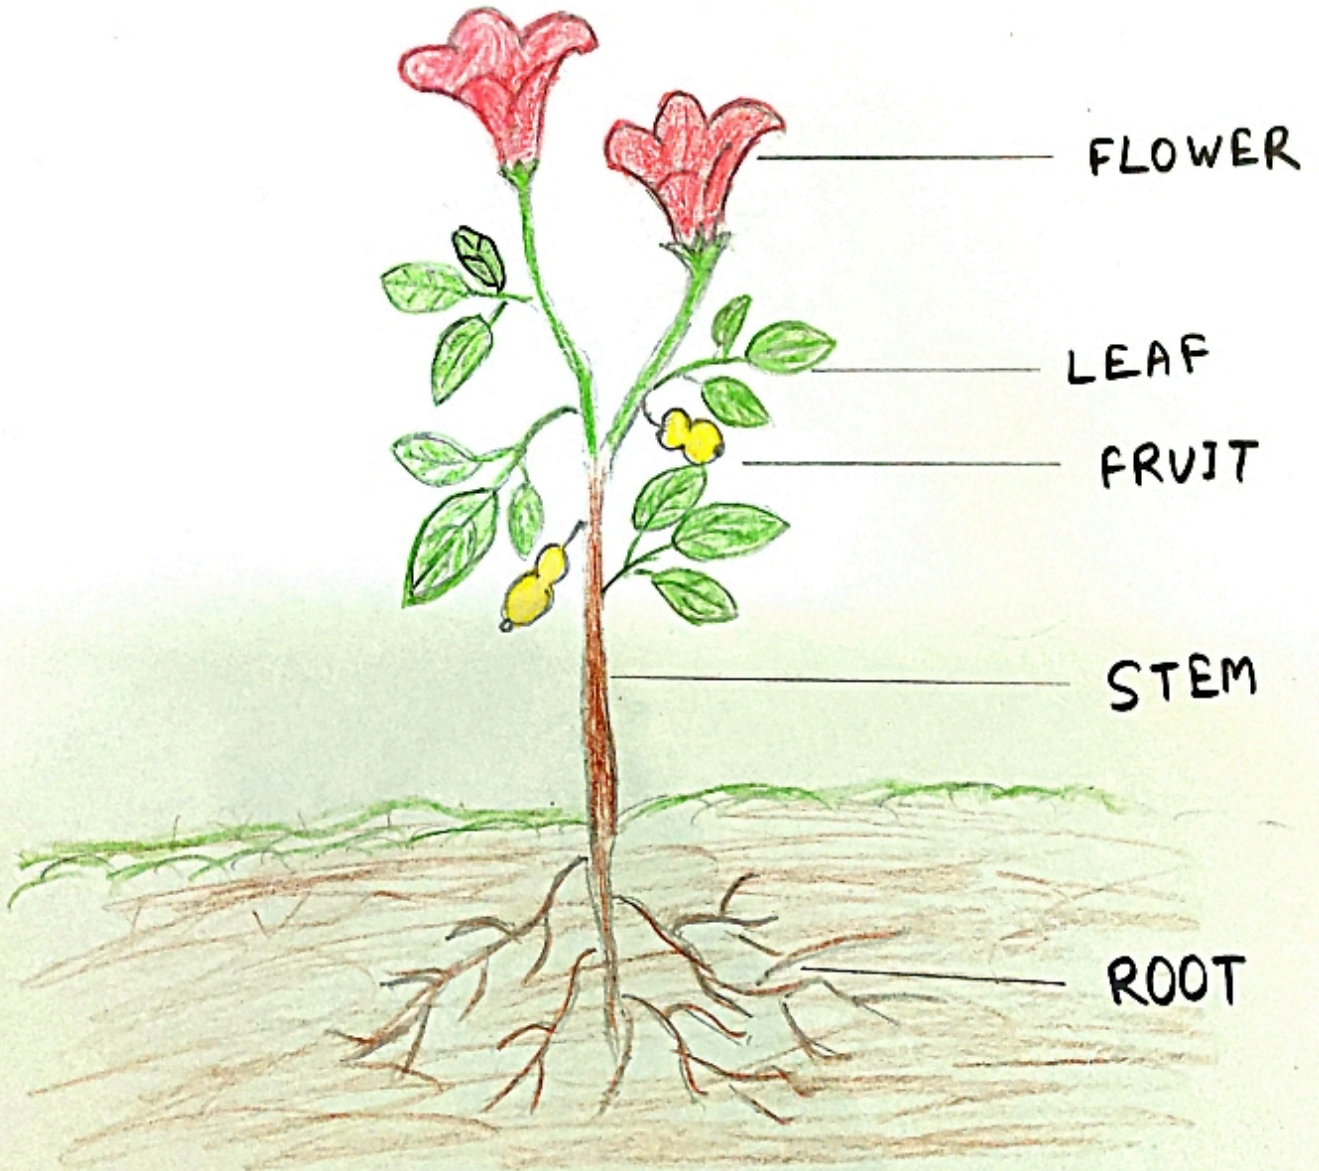 FLOWER
LEAF
FRUIT
STEM
ROOT